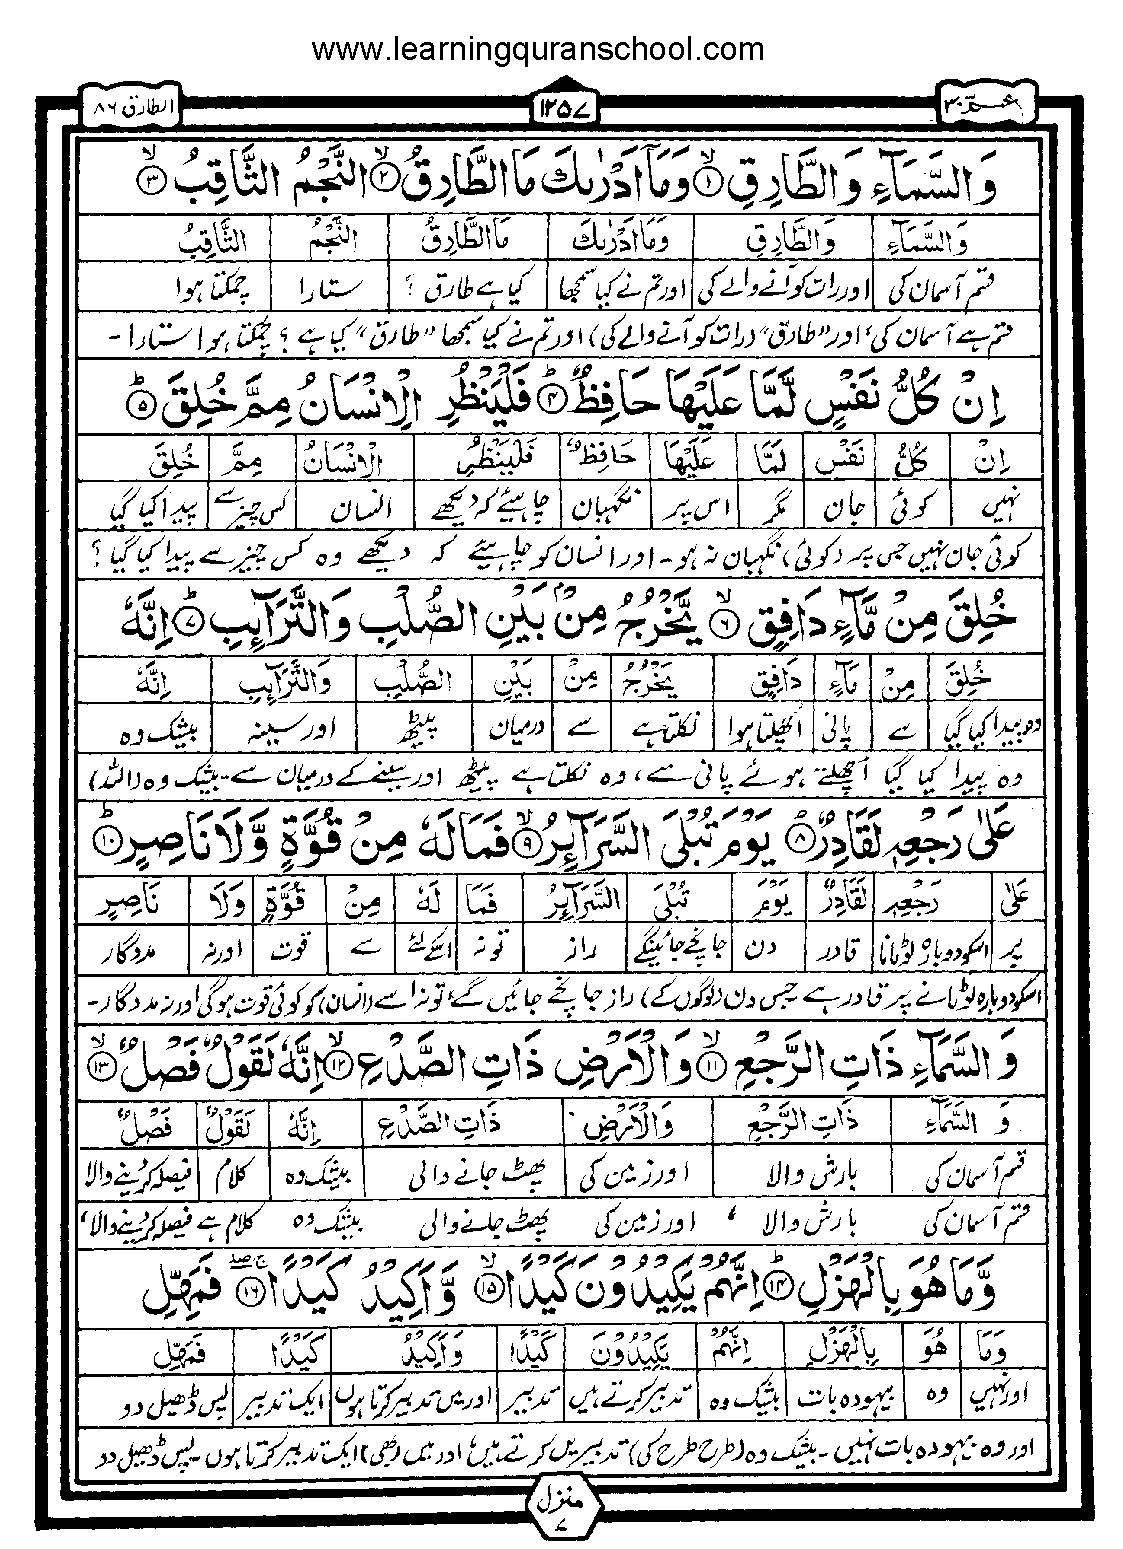 www.learningquranschool.com
عمّ ۳۰
۱۲۵۷
الطارق ۸۶
وَالسَّمَآءِ وَالطَّارِقِ ۙ﴿۱﴾ وَمَاۤ اَدْرٰىكَ مَا الطَّارِقُ ۙ﴿۲﴾ النَّجْمُ الثَّاقِبُ ۙ﴿۳﴾
وَالسَّمَآءِ وَالطَّارِقِ وَمَاۤ اَدْرٰىكَ مَا الطَّارِقُ النَّجْمُ الثَّاقِبُ
قسم آسمان کی اور رات کو آنے والے کی اور تم نے کیا سمجھا کیا ہے طارق ؟ ستارا چمکتا ہوا
قسم ہے آسمان کی' اور "طارق" (رات کو آنے والے کی) اور تم نے کیا سمجھا "طارق" کیا ہے ؟ چمکتا ہوا ستارا -
اِنْ كُلُّ نَفْسٍ لَّمَّا عَلَيْهَا حَافِظٌ ؕ﴿۴﴾ فَلْيَنْظُرِ الْاِنْسَانُ مِمَّ خُلِقَ ؕ﴿۵﴾
اِنْ كُلُّ نَفْسٍ لَمَّا عَلَيْهَا حَافِظٌ فَلْيَنْظُرِ الْاِنْسَانُ مِمَّ خُلِقَ
نہیں کوئی جان مگر اس پر نگہبان چاہیئے کہ دیکھے انسان کس چیز سے پیدا کیا گیا
کوئی جان نہیں جس پر (کوئی) نگہبان نہ ہو - اور انسان کو چاہیئے کہ دیکھے وہ کس چیز سے پیدا کیا گیا ؟
خُلِقَ مِنْ مَّآءٍ دَافِقٍ ۙ﴿۶﴾ يَّخْرُجُ مِنْۢ بَيْنِ الصُّلْبِ وَالتَّرَآئِبِ ؕ﴿۷﴾ اِنَّهٗ
خُلِقَ مِنْ مَآءٍ دَافِقٍ يَخْرُجُ مِنْ بَيْنِ الصُّلْبِ وَالتَّرَآئِبِ اِنَّهٗ
وہ پیدا کیا گیا سے پانی اچھلتا ہوا نکلتا ہے سے درمیان پیٹھ اور سینہ بیشک وہ
وہ پیدا کیا گیا اُچھلتے ہوئے پانی سے، وہ نکلتا ہے پیٹھ اور سینے کے درمیان سے - بیشک وہ (اللہ)
عَلٰى رَجْعِهٖ لَقَادِرٌ ؕ﴿۸﴾ يَوْمَ تُبْلَى السَّرَآئِرُ ۙ﴿۹﴾ فَمَا لَهٗ مِنْ قُوَّةٍ وَّلَا نَاصِرٍ ؕ﴿۱۰﴾
عَلٰى رَجْعِهٖ لَقَادِرٌ يَوْمَ تُبْلَى السَّرَآئِرُ فَمَا لَهٗ مِنْ قُوَّةٍ وَلَا نَاصِرٍ
پر اسکو دوبارہ لوٹانا قادر دن جانچے جائینگے راز تو نہ اسکے لئے سے قوت اور نہ مددگار
اسکو دوبارہ لوٹانے پر قادر ہے جس دن (لوگوں کے) راز جانچے جائیں گے' تو نہ اسے (انسان) کو کوئی قوت ہوگی اور نہ مددگار -
وَالسَّمَآءِ ذَاتِ الرَّجْعِ ۙ﴿۱۱﴾ وَالْاَرْضِ ذَاتِ الصَّدْعِ ۙ﴿۱۲﴾ اِنَّهٗ لَقَوْلٌ فَصْلٌ ۙ﴿۱۳﴾
وَ السَّمَآءِ ذَاتِ الرَّجْعِ وَالْاَرْضِ ذَاتِ الصَّدْعِ اِنَّهٗ لَقَوْلٌ فَصْلٌ
قسم آسمان کی بارش والا اور زمین کی پھٹ جانے والی بیشک وہ کلام فیصلہ کر دینے والا
قسم آسمان کی بارش والا ، اور زمین کی پھٹ جانے والی بیشک وہ کلام ہے فیصلہ کر دینے والا'
وَّمَا هُوَ بِالْهَزْلِ ؕ﴿۱۴﴾ اِنَّهُمْ يَكِيْدُوْنَ كَيْدًا ۙ﴿۱۵﴾ وَّاَكِيْدُ كَيْدًا ۚۖ﴿۱۶﴾ فَمَهِّلِ
وَمَا هُوَ بِالْهَزْلِ اِنَّهُمْ يَكِيْدُوْنَ كَيْدًا وَاَكِيْدُ كَيْدًا فَمَهِّلِ
اور نہیں وہ بیہودہ بات بیشک وہ تدبیر کرتے ہیں تدبیر اور میں تدبیر کرتا ہوں ایک تدبیر پس ڈھیل دو
اور وہ بیہودہ بات نہیں - بیشک وہ (طرح طرح کی) تدبیریں کرتے ہیں' اور میں (بھی) ایک تدبیر کرتا ہوں - پس ڈھیل دو
منزل
۷